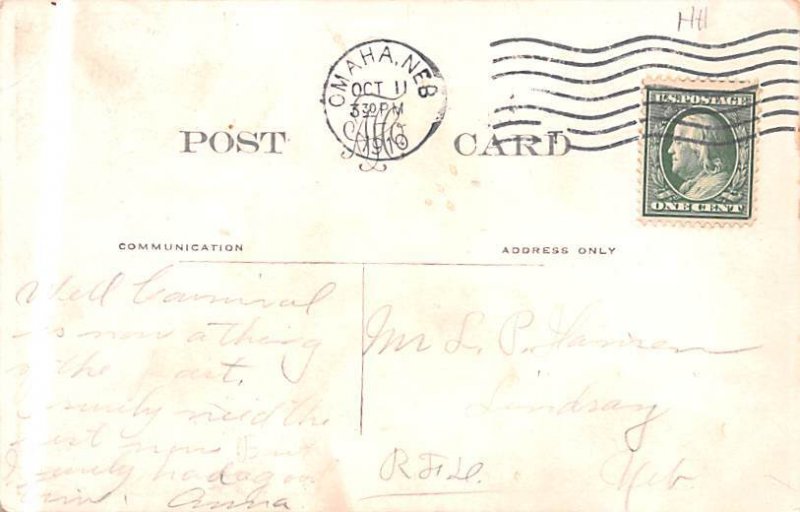 HH
OMAHA, NEB
OCT 11
330 PM
1910
POST CARD
U.S. POSTAGE
ONE CENT
COMMUNICATION
ADDRESS ONLY
Well Carnival
is now a thing
of the Past.
I surely need the
rest now but
I surely had a good
time. Anna.
Mr L. P. Hansen
Lindsay
R.F.D. Neb.